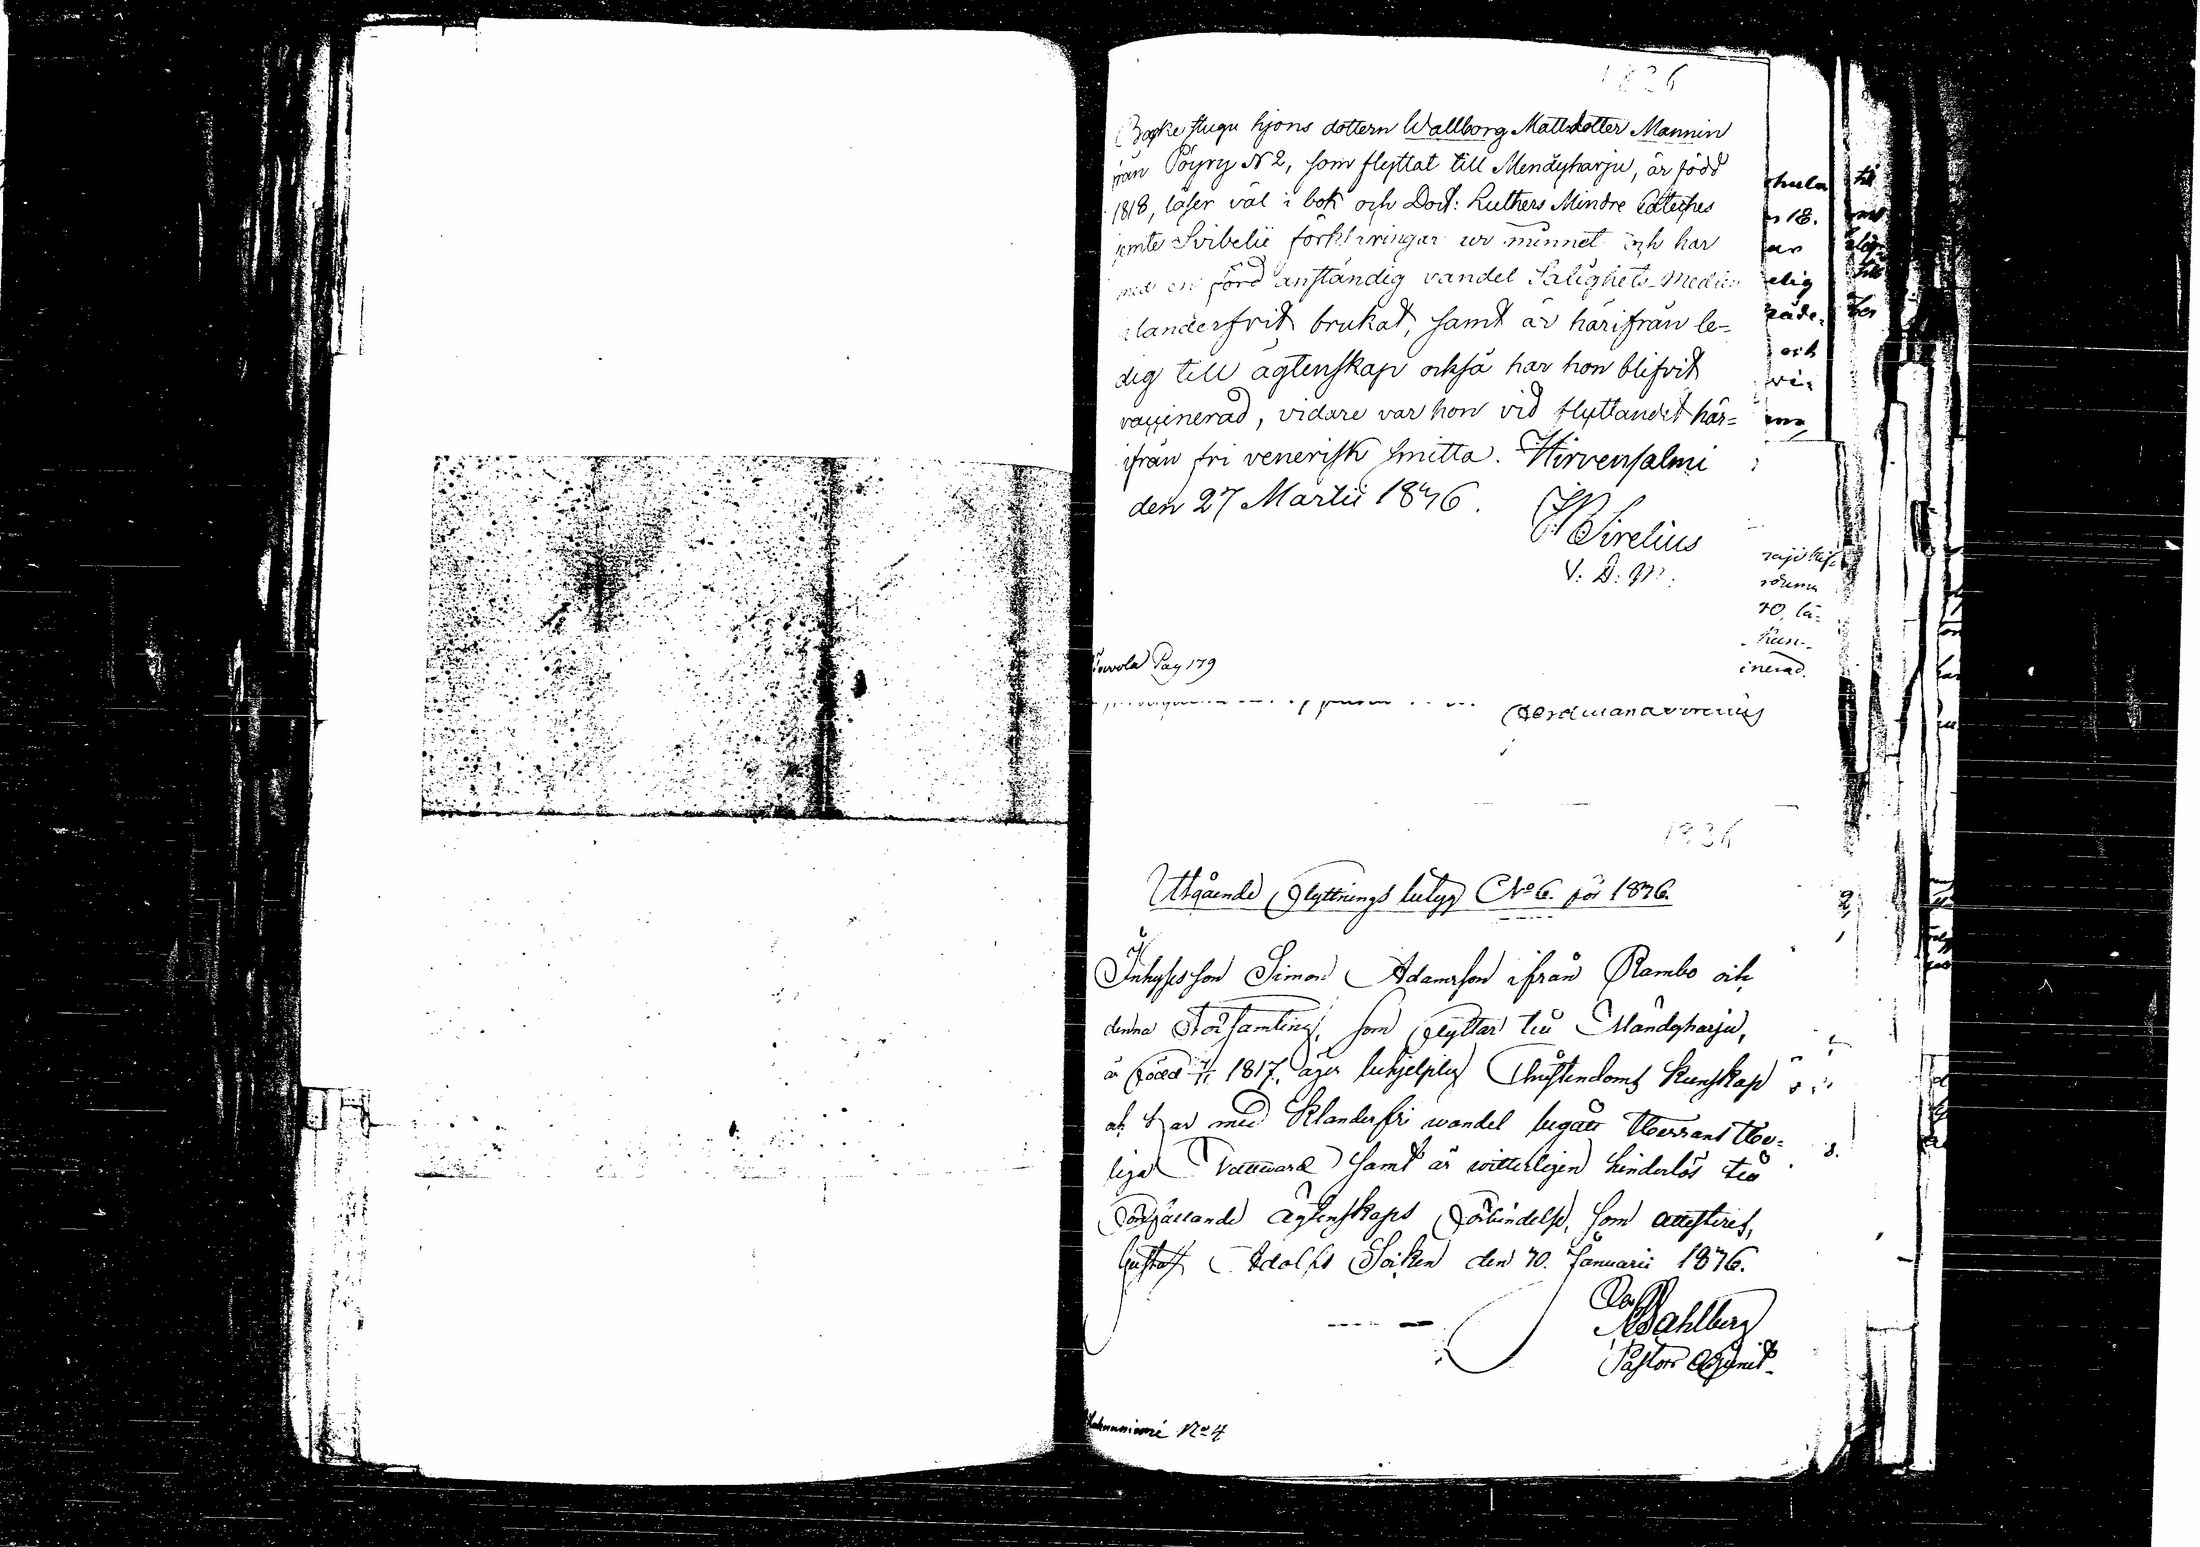 1836
Backstugu hjons dottern Wallborg Mattsdotter Mannin
från Pöyry N 2, som flyttat till Mendyharju, är född
1818, läser väl i bok och Doct: Luthers Mindre Cateches
jemte Svibelii förklaringar ur minnet och har
med en förd anständig vandel Salighets-Medlen
klanderfritt brukat, samt är härifrån le=
dig till ägtenskap också har hon blifvit
vaccinerad, vidare var hon vid flyttandet här=
ifrån fri venerisk smitta. Hirvensalmi
den 27 Martii 1836.
Sirelius
V: D: M:
Pag 179
1836
Utgående Flyttnings betyg No 6. för 1836.
Inhyses son Simon Adamsson ifrån Rambo och
denna Församling, som flyttar till Mändyharju,
är född 1817, äger behjelplig Christendoms kunskap
och har med klanderfri wandel begått Herrans He=
liga Nattward samt är witterligen hinderlös till
förefallande ägtenskaps förbindelse, som attesteras,
Gustaf Adolfs Socken den 30. Januarii 1836.
Wahlberg
Pastors Adjunct
No 4